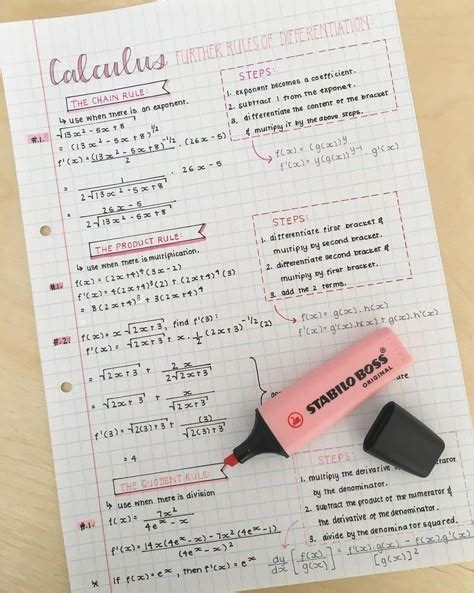 Calculus FURTHER RULES OF DIFFERENTIATION:
THE CHAIN RULE:
↳ use when there is an exponent.
#.1. √13x² - 5x + 8
= (13x² - 5x + 8)^1/2
f'(x) = (13x² - 5x + 8)^-1/2 / 2 . (26x - 5)
= 1 / 2√13x² - 5x + 8 . 26x - 5
= 26x - 5 / 2√13x² - 5x + 8
STEPS:
1. exponent becomes a coefficient.
2. subtract 1 from the exponent.
3. differentiate the content of the bracket
& multiply it by the above steps.
f(x) = (g(x))^y
f'(x) = y(g(x))^y-1 . g'(x)
THE PRODUCT RULE:
↳ use when there is multiplication.
#1. f(x) = (2x+4)⁴(3x-2)
f'(x) = 4(2x+4)³(2) + (2x+4)⁴(3)
= 8(2x+4)³ + 3(2x+4)⁴
STEPS:
1. differentiate first bracket &
multiply by second bracket.
2. differentiate second bracket &
multiply by first bracket.
3. add the 2 terms.
f(x) = g(x).h(x)
f'(x) = g'(x).h(x) + g(x).h'(x)
#.2. f(x) = x√2x+3, find f'(3):
f'(x) = √2x+3 + x . 1/2 (2x+3)^-1/2 (2)
= √2x+3 + 2x / 2√2x+3
= √2x+3 + x / √2x+3
f'(3) = √2(3)+3 + (3) / √2(3)+3
= 4
STABILO BOSS
ORIGINAL
THE QUOTIENT RULE:
↳ use when there is division
#.1. f(x) = 7x² / 4eˣ - x
f'(x) = 14x(4eˣ - x) - 7x²(4eˣ - 1) / (4eˣ - x)²
* If f(x) = eˣ, then f'(x) = eˣ
STEPS:
1. multiply the derivative
by the denominator.
2. subtract the product of the numerator &
the derivative of the denominator.
3. divide by the denominator squared.
dy/dx [f(x)/g(x)] = f'(x).g(x) - f(x).g'(x) / [g(x)]²